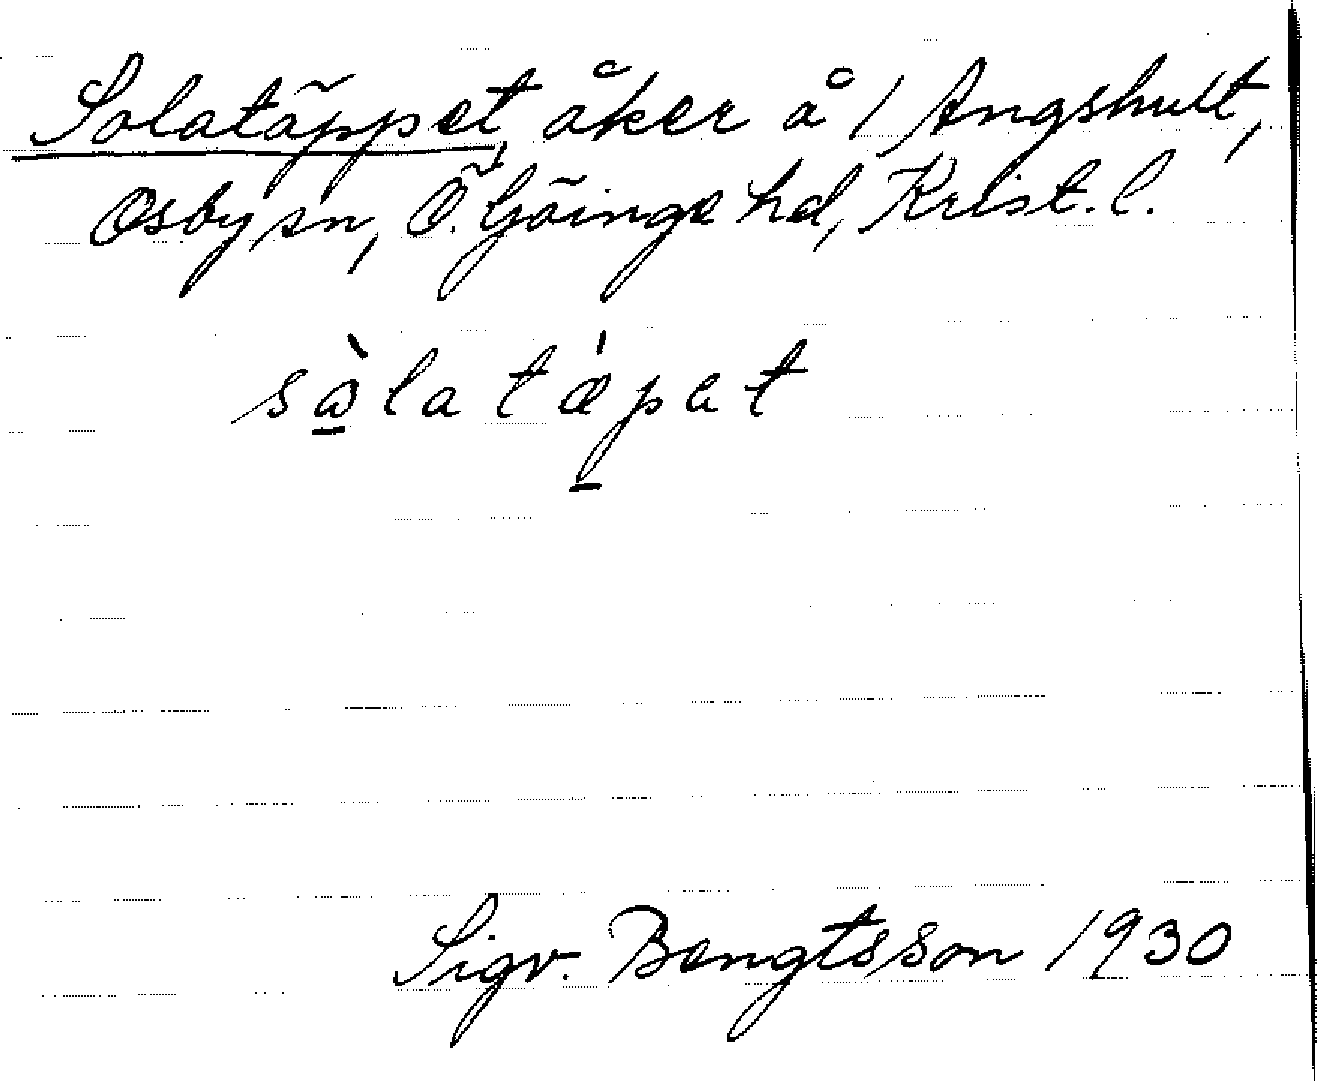 Solatäppet, åker å 1 Angshult,
Osby sn, Ö. Göinge hd, Krist. l.
sàlatǽpat
Sigv. Bengtsson 1930